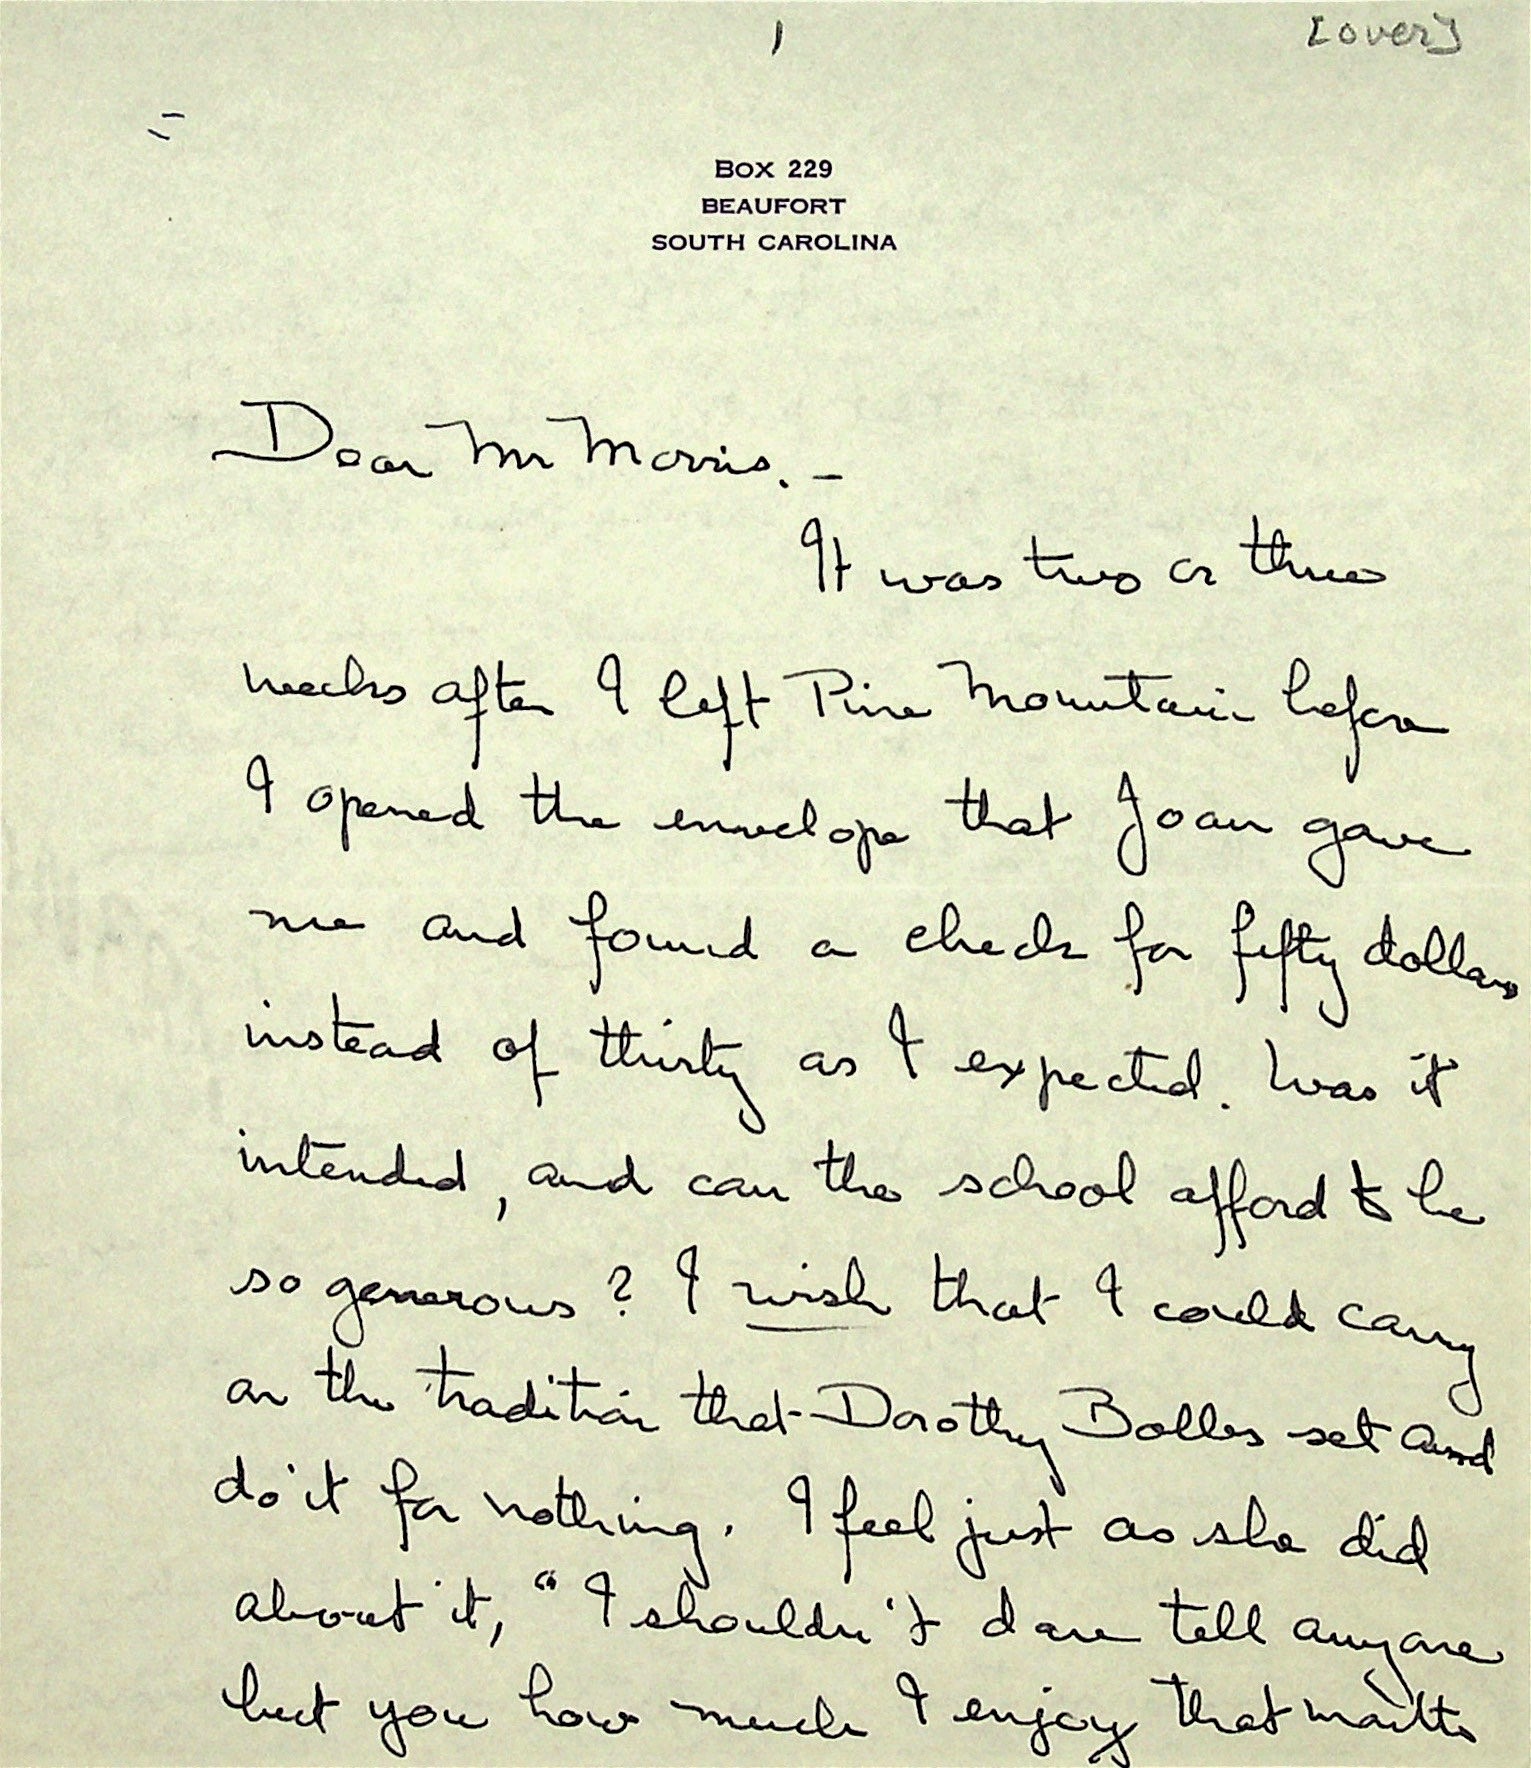 1
[over]
BOX 229
BEAUFORT
SOUTH CAROLINA
Dear Mr Morris. –
It was two or three
weeks after I left Pine Mountain before
I opened the envelope that Joan gave
me and found a check for fifty dollars
instead of thirty as I expected. Was it
intended, and can the school afford to be
so generous? I wish that I could carry
on the tradition that Dorothy Bolles set and
do it for nothing. I feel just as she did
about it, "I shouldn't dare tell anyone
but you how much I enjoy that